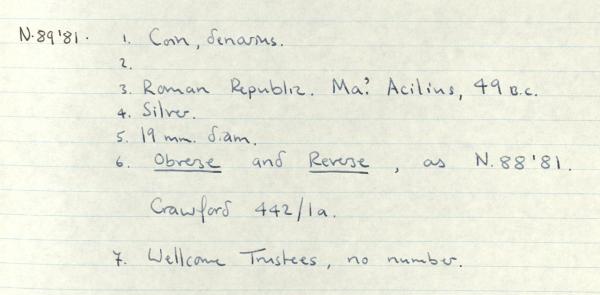 N.89'81. 1. Coin, denarius.
2.
3. Roman Republic. Ma? Acilius, 49 B.C.
4. Silver.
5. 19 mm. diam.
6. Obverse and Reverse, as N.88'81.
Crawford 442/1a.
7. Wellcome Trustees, no number.